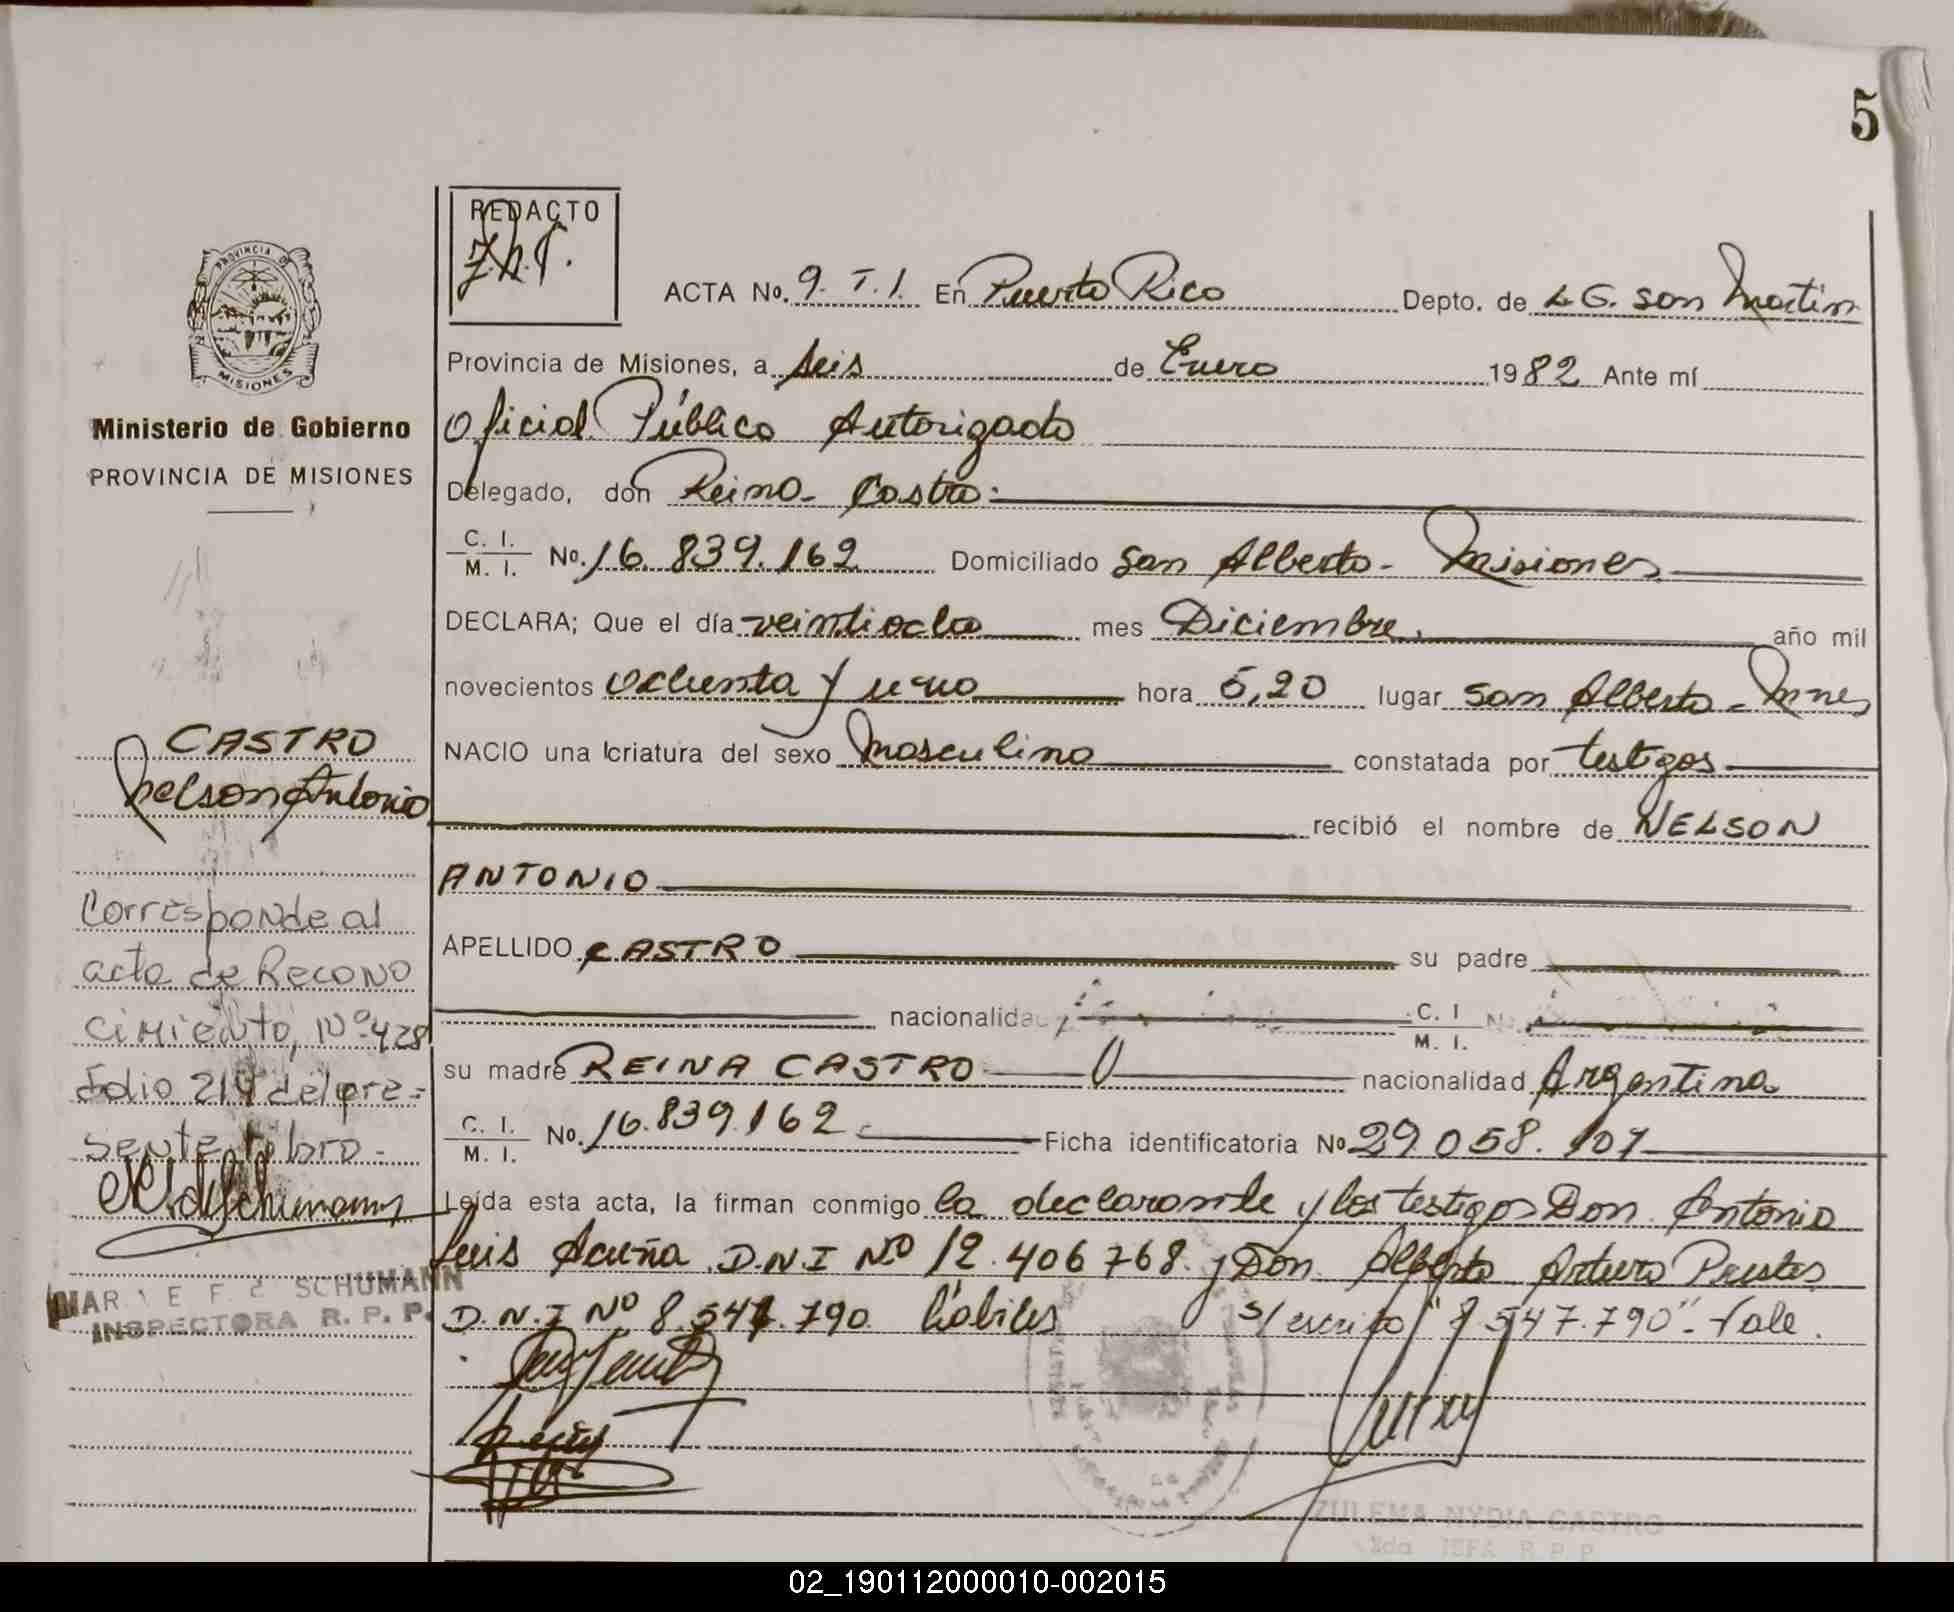 5
REDACTO
PROVINCIA DE
MISIONES
Ministerio de Gobierno
PROVINCIA DE MISIONES
ACTA No. 9. T.1. En Puerto Rico Depto. de L G. San Martin
Provincia de Misiones, a seis de Enero 1982 Ante mí
Oficial Público Autorizado
Delegado, don Reina Castro:
C. I. / M. I. No. 16.839.162 Domiciliado San Alberto - Misiones
DECLARA; Que el día veintiocho mes Diciembre. año mil
novecientos ochenta y uno hora 5,20 lugar San Alberto - Mnes
NACIO una criatura del sexo Masculino constatada por testigos
recibió el nombre de NELSON
ANTONIO
APELLIDO CASTRO su padre
nacionalidad C. I. / M. I. No.
su madre REINA CASTRO nacionalidad Argentina
C. I. / M. I. No. 16.839.162 Ficha identificatoria No 29.058.107
Leída esta acta, la firman conmigo la declarante y los testigos Don Antonio
Luis Acuña D.N.I Nº 12.406768. y Don Alberto Arturo Prestes
D.N.I Nº 8.547.790 hábiles S/ escrito "8 547.790" - Vale.
CASTRO
Nelson Antonio
Corresponde al
acta de Recono
cimiento, Nº 428
Folio 214 del pre=
sente libro -
SCHUMANN
INSPECTORA R. P. P.
ZULEMA NYDIA CASTRO
2da JEFA R. P. P.
02_190112000010-002015